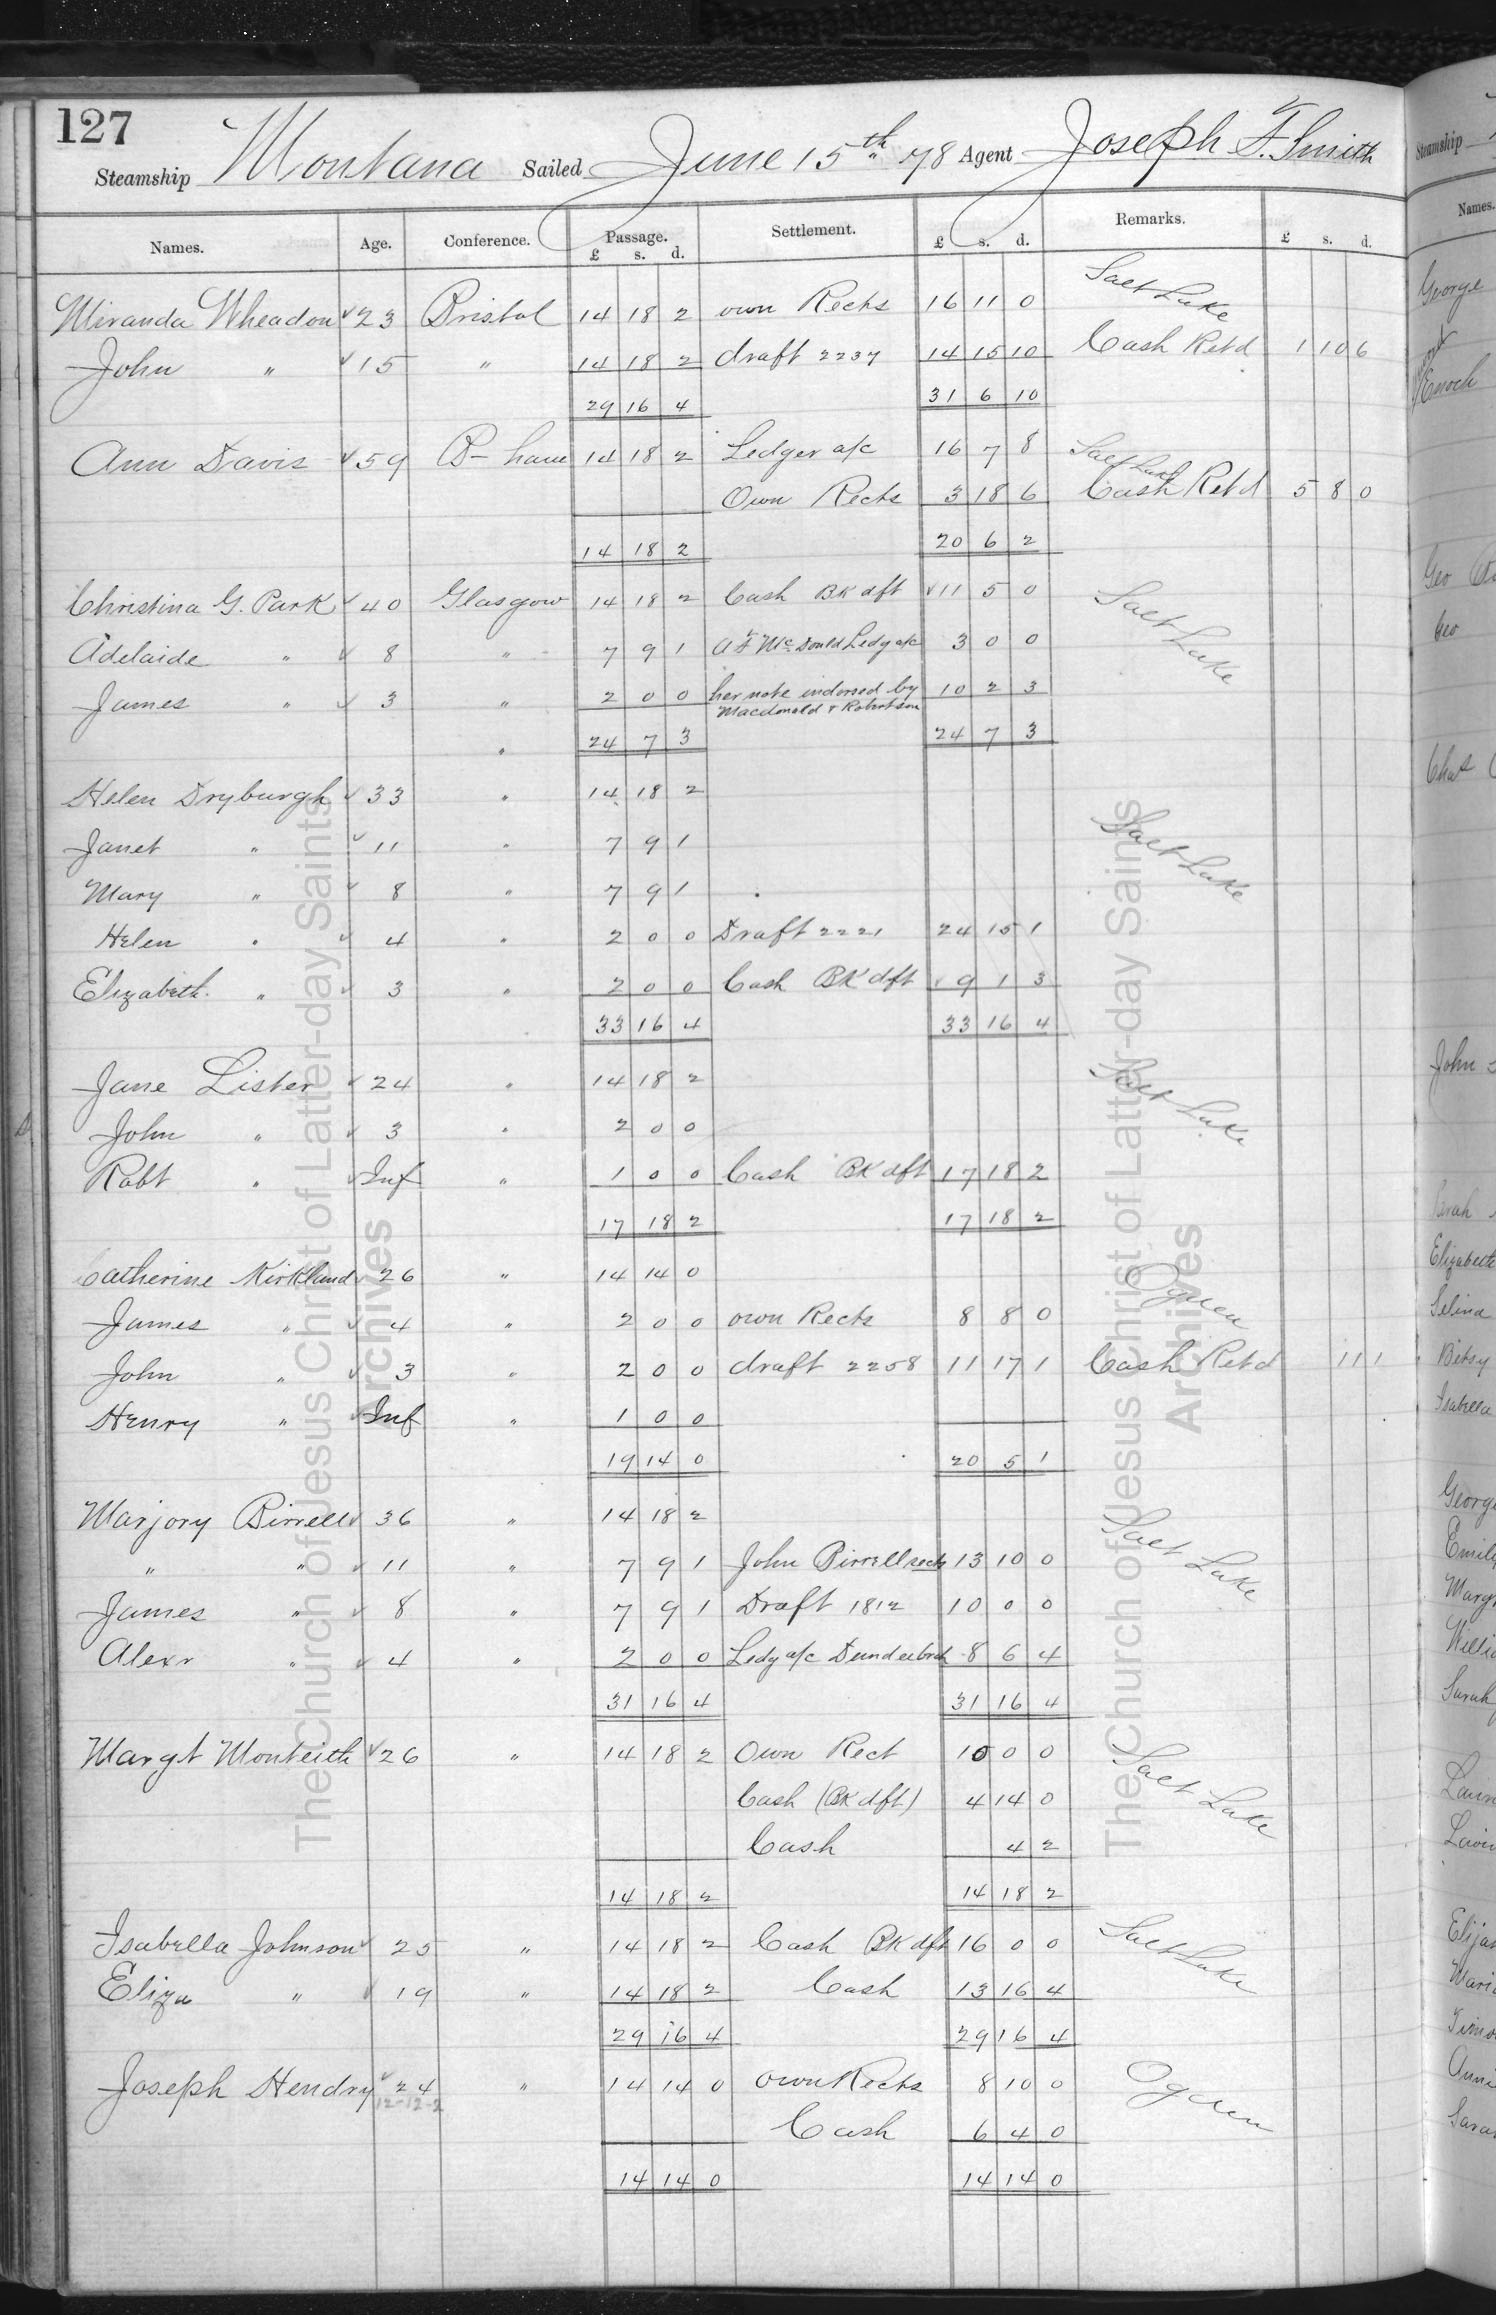 127
Steamship Montana Sailed June 15th 78 Agent Joseph F. Smith
Names. Age. Conference. Passage. Settlement. £ s. d. Remarks. £ s. d.
£ s. d.
Miranda Wheadon 23 Bristol 14 18 2 own Rects 16 11 0 Salt Lake
John " 15 " 14 18 2 draft 2237 14 15 10 Cash Retd 1 10 6
29 16 4 31 6 10
Ann Davis 59 B-ham 14 18 2 Ledger a/c 16 7 8 Salt Lake
Own Rects 3 18 6 Cash Retd 5 8 0
14 18 2 20 6 2
Christina G. Park 40 Glasgow 14 18 2 Cash BK dft 11 5 0 Salt Lake
Adelaide " 8 " 7 9 1 A F McDonald Ledg a/c 3 0 0
James " 3 " 2 0 0 her note indorsed by 10 2 3
Macdonald & Robertson
" 24 7 3 24 7 3
Helen Dryburgh 33 " 14 18 2
Janet " 11 " 7 9 1 Salt Lake
Mary " 8 " 7 9 1
Helen " 4 " 2 0 0 Draft 2221 24 15 1
Elizabeth " 3 " 2 0 0 Cash BK dft 9 1 3
33 16 4 33 16 4
Jane Lister 24 " 14 18 2 Salt Lake
John " 3 " 2 0 0
Robt " Inf " 1 0 0 Cash BK dft 17 18 2
17 18 2 17 18 2
Catherine Kirkland 26 " 14 14 0 Ogden
James " 4 " 2 0 0 own Rects 8 8 0
John " 3 " 2 0 0 draft 2258 11 17 1 Cash Retd 11 1
Henry " Inf " 1 0 0
19 14 0 20 5 1
Marjory Birrell 36 " 14 18 2 Salt Lake
" " 11 " 7 9 1 John Birrell rects 13 10 0
James " 8 " 7 9 1 Draft 1812 10 0 0
Alexr " 4 " 2 0 0 Ledg a/c 8 6 4
31 16 4 31 16 4
Margt Monteith 26 " 14 18 2 Own Rect 10 0 0 Salt Lake
Cash (BK dft) 4 14 0
Cash 4 2
14 18 2 14 18 2
Isabella Johnson 25 " 14 18 2 Cash BK dft 16 0 0 Salt Lake
Eliza " 19 " 14 18 2 Cash 13 16 4
29 16 4 29 16 4
Joseph Hendry 24 " 14 14 0 own Rects 8 10 0 Ogden
12-12-2
Cash 6 4 0
14 14 0 14 14 0
The Church of Jesus Christ of Latter-day Saints
Archives
The Church of Jesus Christ of Latter-day Saints
Archives
Steamship
Names.
George
Enoch
Geo
Geo
Chas
John
Sarah
Elizabeth
Selina
Betsy
Isabella
George
Emily
Sarah